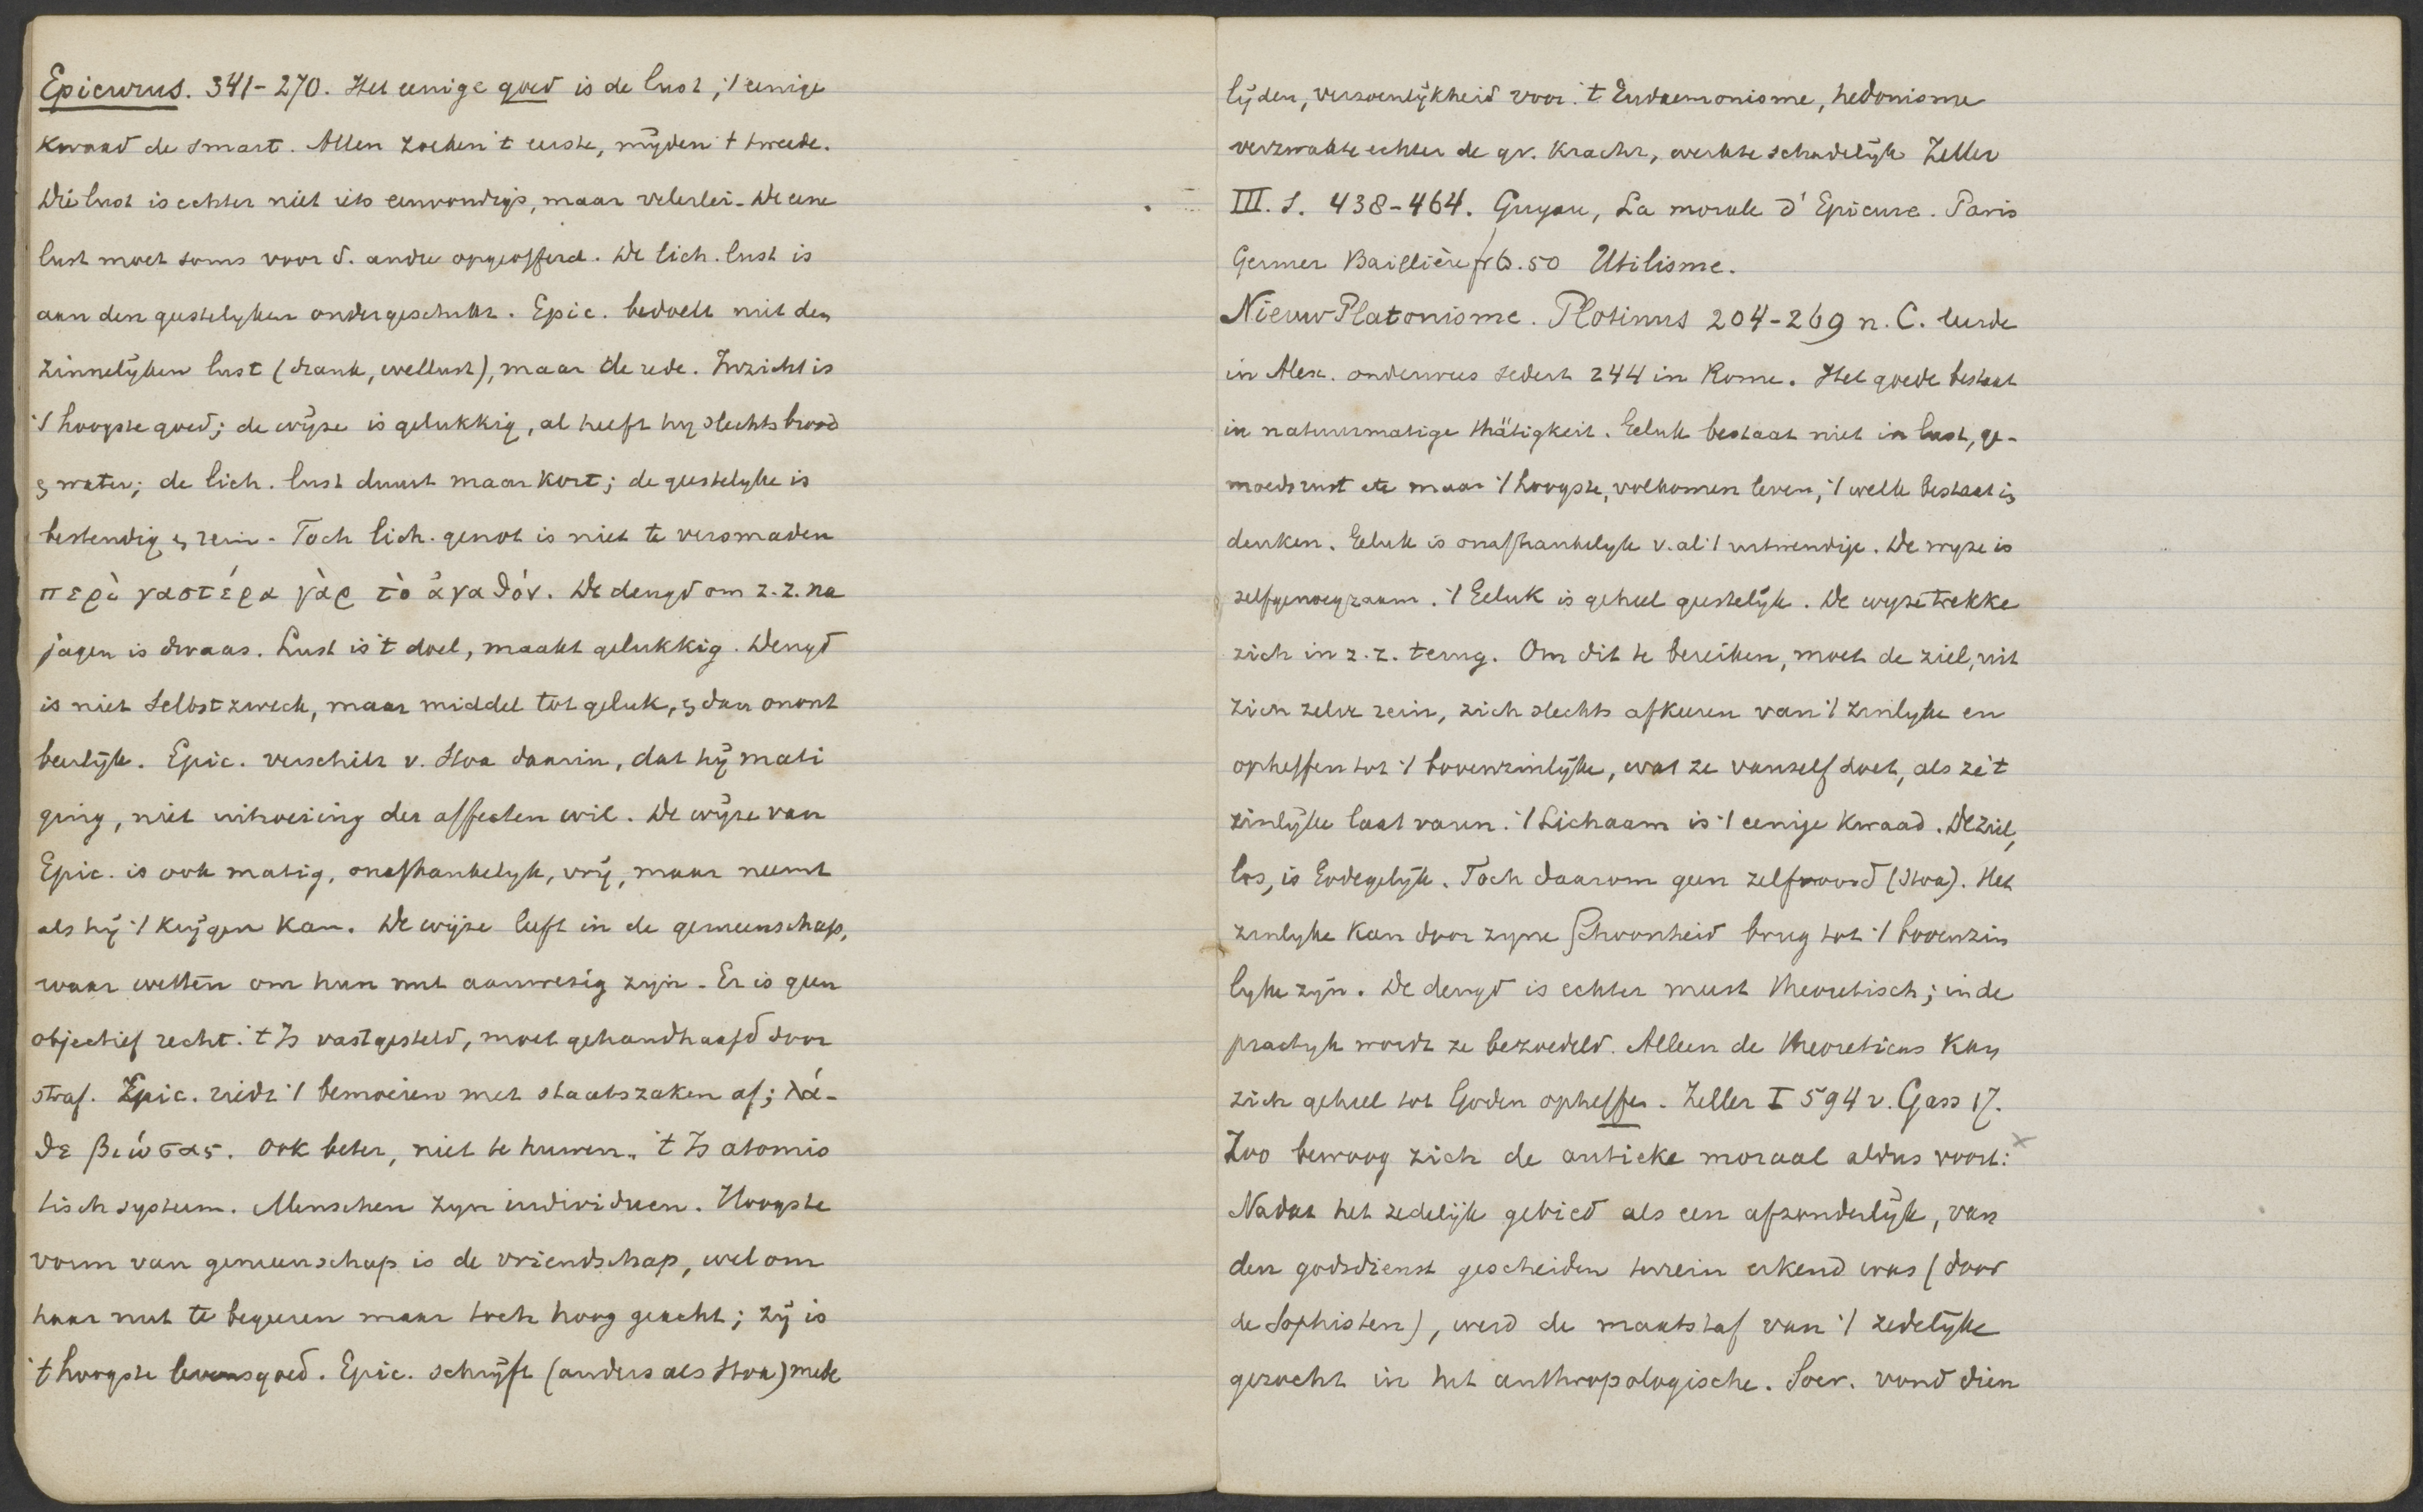 Epicurus. 341-270. Het eenige goed is de lust; 't eenige
kwaad de smart. Allen zoeken 't eerste, mijden 't tweede.
Die lust is echter niet iets eenvoudigs, maar velerlei. De eene
lust moet soms voor d. andre opgeofferd. De lich. lust is
aan den geestelyken ondergeschikt. Epic. bedoelt niet den
zinnelijken lust (drank, wellust), maar de rede. Inzicht is
't hoogste goed; de wijze is gelukkig, al heeft hy slechts brood
en water; de lich. lust duurt maar kort; de geestelyke is
bestendig en rein. Toch lich. genot is niet te versmaden
περὶ γαστέρα γὰρ τὸ ἀγαθόν. De deugd om z.z. na
jagen is dwaas. Lust is 't doel, maakt gelukkig. Deugd
is niet Selbstzweck, maar middel tot geluk, en dan onont
beerlijk. Epic. verschilt v. Stoa daarin, dat hij mati
ging, niet uitroeiing der affecten wil. De wijze van
Epic. is ook matig, onafhankelyk, vrij, maar neemt
als hij 't krijgen kan. De wijze leeft in de gemeenschap,
waar wetten om hun nut aanwezig zijn. Er is geen
objectief recht. 't Is vastgesteld, moet gehandhaafd door
straf. Epic. riedt 't bemoeien met staatszaken af; λά-
θε βιώσας. Ook beter, niet te huwen. 't Is atomis
tisch systeem. Menschen zyn individuen. Hoogste
vorm van gemeenschap is de vriendschap, wel om
haar nut te begeeren maar toch hoog geacht; zij is
't hoogste levensgoed. Epic. schrijft (anders als Stoa) mede
lijden, verzoenlijkheid voor. 't Eudaemonisme, hedonisme
verzwakte echter de gr. kracht, werkte schadelijk Zeller
III. S. 438-464. Guyau, La morale d'Epicure. Paris
Germer Baillière fr 6.50 Utilisme.
Nieuw Platonisme. Plotinus 204-269 n. C. leerde
in Alex. onderwees sedert 244 in Rome. Het goede bestaat
in natuurmatige thätigkeit. Geluk bestaat niet in lust, ge-
moedsrust etc maar 't hoogste, volkomen leven, 't welk bestaat in
denken. Geluk is onafhankelyk v. al 't uitwendige. De wyze is
zelfgenoegzaam. 't Geluk is geheel geestelijk. De wyze trekke
zich in z.z. terug. Om dit te bereiken, moet de ziel, uit
zich zelve rein, zich slechts afkeeren van 't zinlyke en
opheffen tot 't bovenzinlijke, wat ze vanzelf doet, als ze 't
zinlijke laat varen. 't Lichaam is 't eenige kwaad. De ziel,
los, is Godegelijk. Toch daarom geen zelfmoord (Stoa). Het
zinlyke kan door zyne schoonheid brug tot 't bovenzin
lyke zijn. De deugd is echter meest theoretisch; in de
practyk wordt ze bezoedeld. Alleen de theoreticus kan
zich geheel tot Goden opheffen. Zeller I 594 v. Gass 17.
Zoo bewoog zich de antieke moraal aldus voort:
Nadat het zedelijk gebied als een afzonderlijk, van
den godsdienst gescheiden terrein erkend was (door
de Sophisten), werd de maatstaf van 't zedelijke
gezocht in het anthropologische. Socr. vond dien